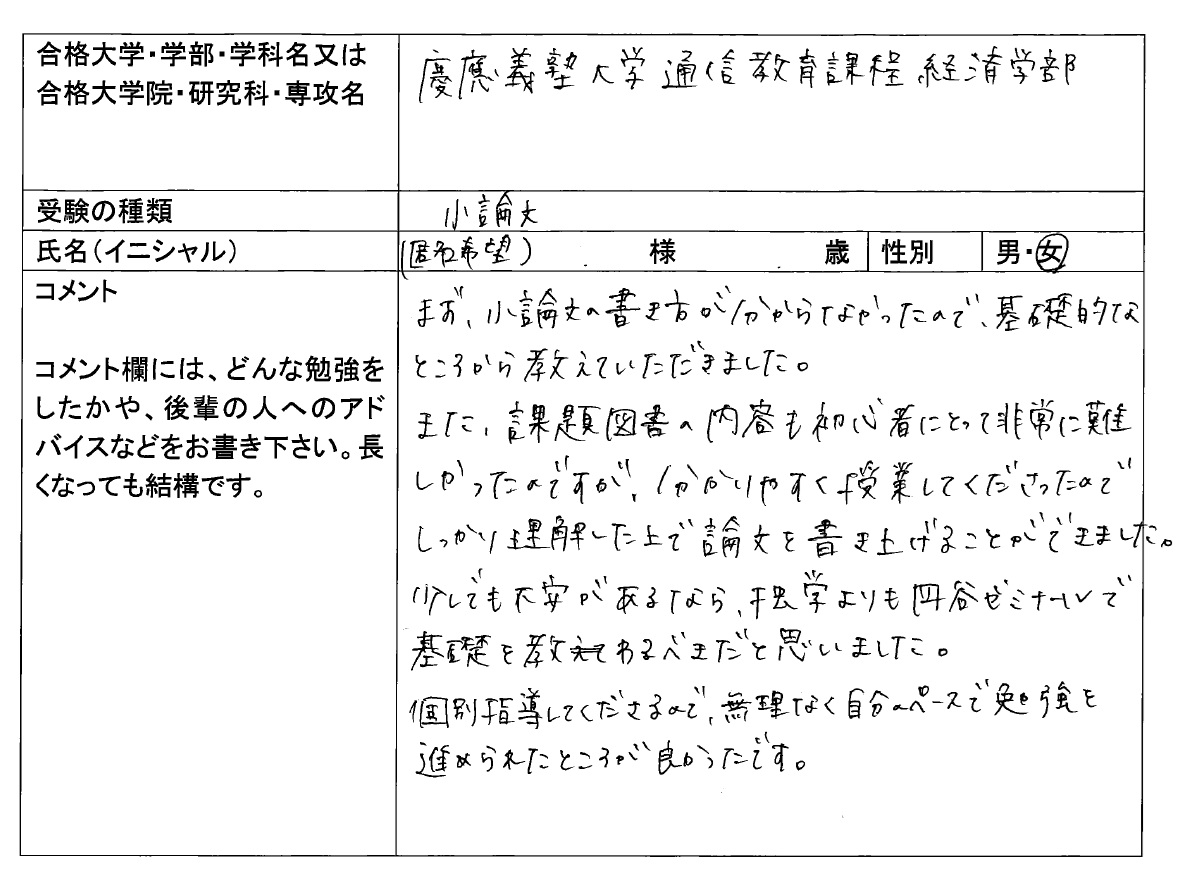 合格大学・学部・学科名又は
合格大学院・研究科・専攻名
慶應義塾大学通信教育課程経済学部
受験の種類
小論文
氏名（イニシャル）
（匿名希望） 様 歳 性別 男・女
コメント
コメント欄には、どんな勉強を
したかや、後輩の人へのアド
バイスなどをお書き下さい。長
くなっても結構です。
まず、小論文の書き方が分からなかったので、基礎的な
ところから教えていただきました。
また、課題図書の内容も初心者にとって非常に難
しかったのですが、分かりやすく授業してくださったので
しっかり理解した上で論文を書き上げることができました。
少しでも不安があるなら、独学よりも四谷ゼミナールで
基礎を教わるべきだと思いました。
個別指導してくださるので、無理なく自分のペースで勉強を
進められたところが良かったです。